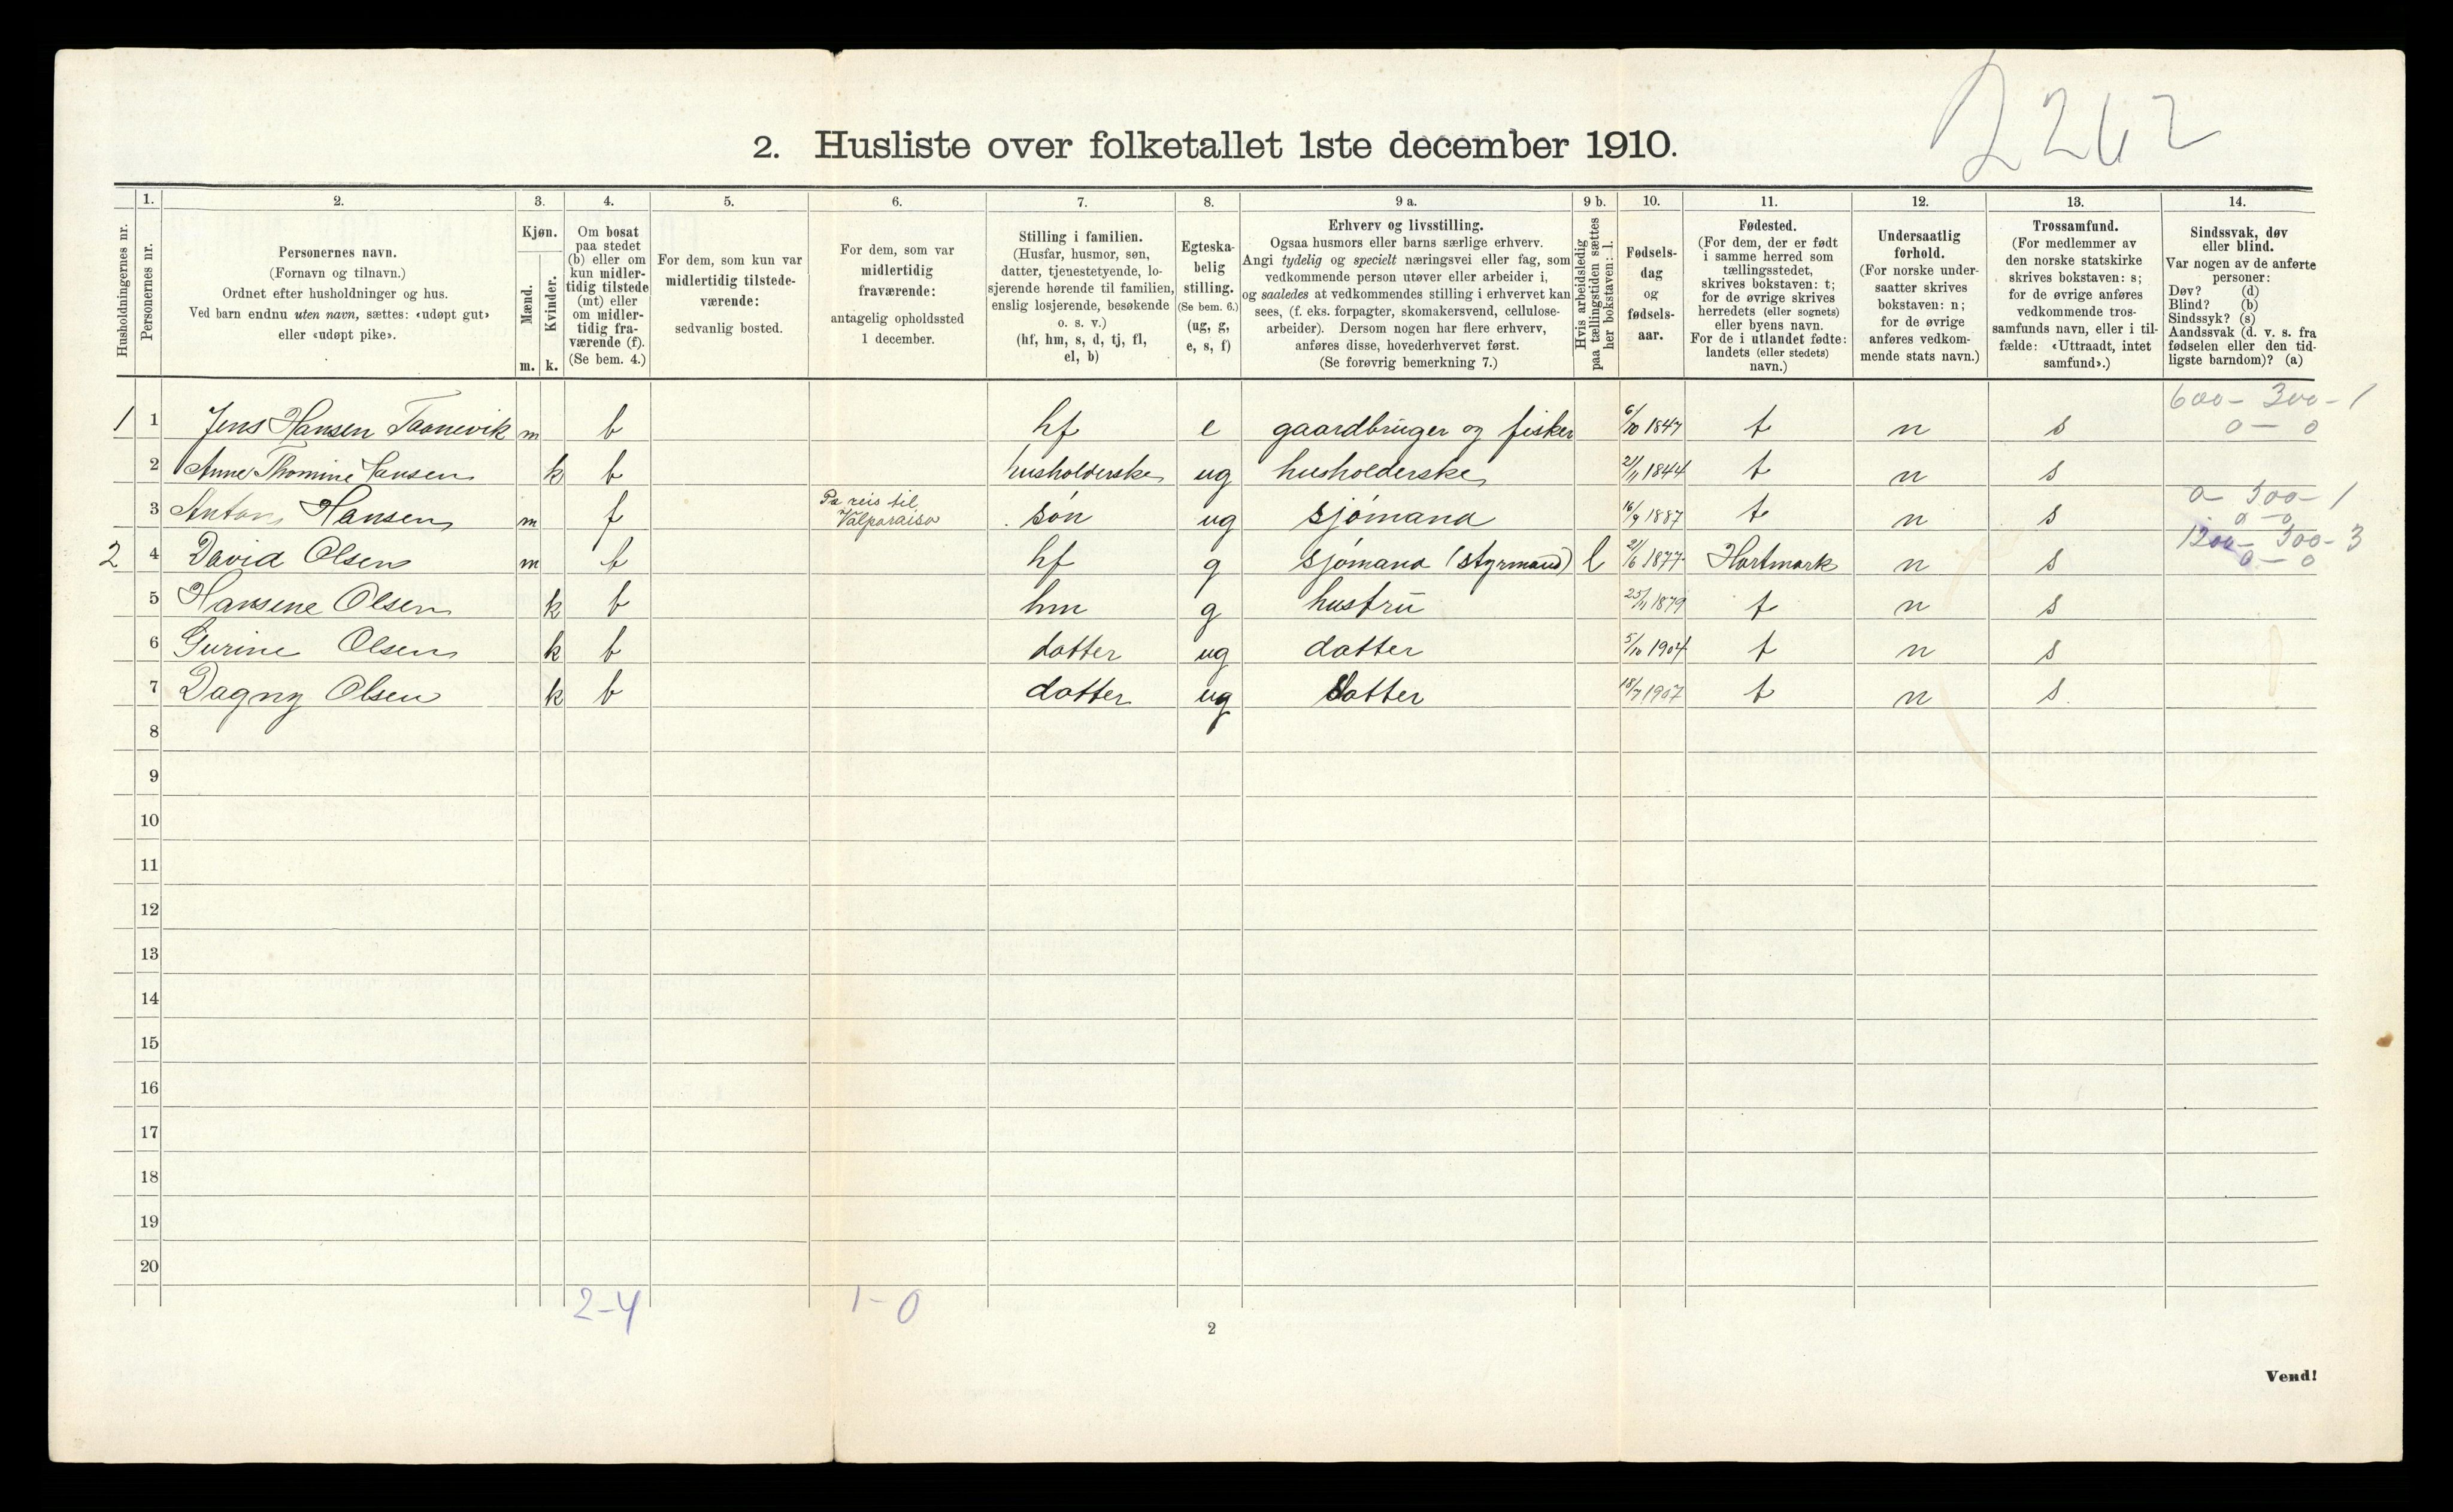 2262
2. Husliste over folketallet 1ste december 1910.
Husholdningernes nr.
1.
Personernes nr.
2.
Personernes navn.
(Fornavn og tilnavn.)
Ordnet efter husholdninger og hus.
Ved barn endnu uten navn, sættes: «udøpt gut»
eller «udøpt pike».
3.
Kjøn.
Mænd.
Kvinder.
m. k.
4.
Om bosat
paa stedet
(b) eller om
kun midler-
tidig tilstede
(mt) eller
om midler-
tidig fra-
værende (f).
(Se bem. 4.)
5.
For dem, som kun var
midlertidig tilstede-
værende:
sedvanlig bosted.
6.
For dem, som var
midlertidig
fraværende:
antagelig opholdssted
1 december.
7.
Stilling i familien.
(Husfar, husmor, søn,
datter, tjenestetyende, lo-
sjerende hørende til familien,
enslig losjerende, besøkende
o. s. v.)
(hf, hm, s, d, tj, fl,
el, b)
8.
Egteska-
belig
stilling.
(Se bem. 6.)
(ug, g,
e, s, f)
9 a.
Erhverv og livsstilling.
Ogsaa husmors eller barns særlige erhverv.
Angi tydelig og specielt næringsvei eller fag, som
vedkommende person utøver eller arbeider i,
og saaledes at vedkommendes stilling i erhvervet kan
sees, (f. eks. forpagter, skomakersvend, cellulose-
arbeider). Dersom nogen har flere erhverv,
anføres disse, hovederhvervet først.
(Se forøvrig bemerkning 7.)
9 b.
Hvis arbeidsledig
paa tællingstiden sættes
her bokstaven: l.
10.
Fødsels-
dag
og
fødsels-
aar.
11.
Fødested.
(For dem, der er født
i samme herred som
tællingsstedet,
skrives bokstaven: t;
for de øvrige skrives
herredets (eller sognets)
eller byens navn.
For de i utlandet fødte:
landets (eller stedets)
navn.)
12.
Undersaatlig
forhold.
(For norske under-
saatter skrives
bokstaven: n;
for de øvrige
anføres vedkom-
mende stats navn.)
13.
Trossamfund.
(For medlemmer av
den norske statskirke
skrives bokstaven: s;
for de øvrige anføres
vedkommende tros-
samfunds navn, eller i til-
fælde: «Uttraadt, intet
samfund».)
14.
Sindssvak, døv
eller blind.
Var nogen av de anførte
personer:
Døv? (d)
Blind? (b)
Sindssyk? (s)
Aandssvak (d. v. s. fra
fødselen eller den tid-
ligste barndom)? (a)
600 - 300 - 1
1 1 Jens Hansen Taanevik m b hf e gaardbruger og fisker 6/10 1847 t n s 0 - 0
2 Anne Thomine Hansen k b husholderske ug husholderske 21/11 1844 t n s
0 - 500 - 1
3 Anton Hansen m f Pa reis til Valparaiso søn ug sjømand 16/9 1887 t n s 0 - 0
1200 - 300 - 3
2 4 David Olsen m b hf g sjømand (styrmand) l 21/6 1877 Hartmark n s 0 - 0
5 Hansine Olsen k b hm g hustru 25/11 1879 t n s
6 Gurine Olsen k b datter ug datter 5/10 1904 t n s
7 Dagny Olsen k b datter ug datter 18/7 1907 t n s.
8
9
10
11
12
13
14
15
16
17
18
19
20
2-4 1-0
2
Vend!